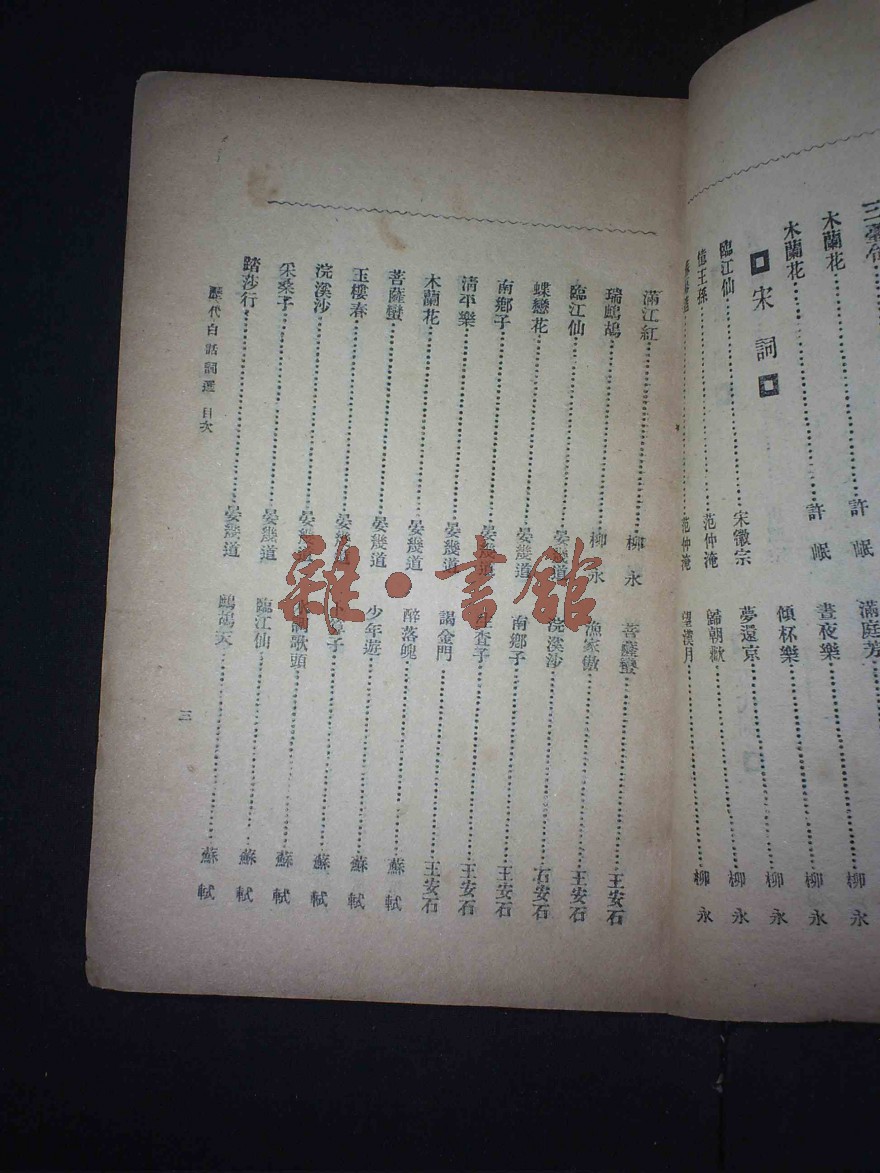 木蘭花 許岷
木蘭花 許岷
宋詞
臨江仙 宋徽宗
憶王孫 范仲淹
范仲淹
滿庭芳
晝夜樂 柳永
傾杯樂 柳永
夢還京 柳永
歸朝歡 柳永
望漢月 柳永
滿江紅 柳永
瑞鷓鴣 柳永
臨江仙 晏幾道
蝶戀花 晏幾道
南鄉子 晏幾道
清平樂 晏幾道
木蘭花 晏幾道
菩薩蠻 晏幾道
玉樓春 晏幾道
浣溪沙 晏幾道
采桑子 晏幾道
踏莎行 晏幾道
菩薩蠻 王安石
漁家傲 王安石
浣溪沙 王安石
南鄉子 王安石
生查子 王安石
謁金門 王安石
醉落魄 蘇軾
少年遊 蘇軾
卜算子 蘇軾
水調歌頭 蘇軾
臨江仙 蘇軾
鷓鴣天 蘇軾
歷代白話詞選 目次
三
雜·書館